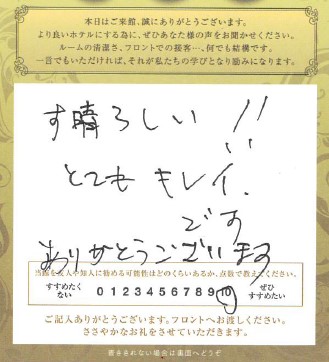 本日はご来館、誠にありがとうございます。
より良いホテルにする為に、ぜひあなた様の声をお聞かせください。
ルームの清潔さ、フロントでの接客…、何でも結構です。
一言でもいただければ、それが私たちの学びとなり励みになります。
す晴らしい!!
とてもキレイ
です
ありがとうございます
当館を友人や知人に勧める可能性はどのくらいあるか、点数で教えてください。
すすめたくない 0 1 2 3 4 5 6 7 8 9 10 ぜひすすめたい
ご記入ありがとうございます。フロントへお渡しください。
ささやかなお礼をさせていただきます。